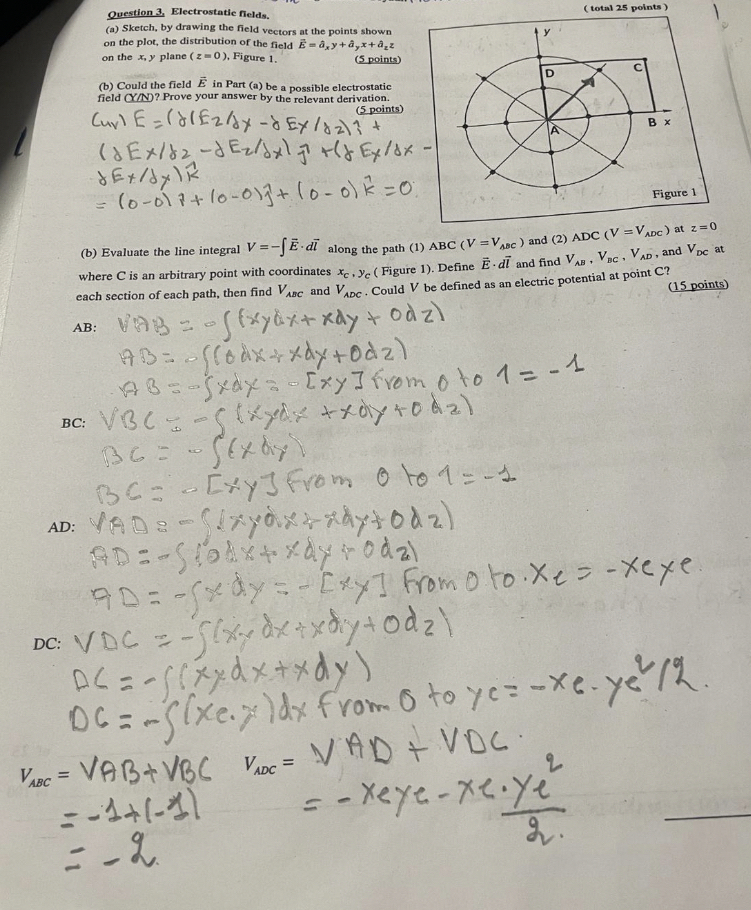 Question 3. Electrostatic fields.
( total 25 points )
(a) Sketch, by drawing the field vectors at the points shown
on the plot, the distribution of the field E⃗ = âₓy + âᵧx + â_z z
on the x, y plane ( z = 0 ), Figure 1.
(5 points)
(b) Could the field E⃗ in Part (a) be a possible electrostatic
field (Y/N)? Prove your answer by the relevant derivation.
(5 points)
Curl E = (∂(Ez/∂y - ∂Ey/∂z)î +
(∂Ex/∂z - ∂Ez/∂x)ĵ + (∂Ey/∂x -
∂Ex/∂y)k̂
= (0-0)î + (0-0)ĵ + (0-0)k̂ = 0
y
D
C
A
B x
Figure 1
(b) Evaluate the line integral V = -∫E⃗·dl⃗ along the path (1) ABC (V = V_ABC) and (2) ADC (V = V_ADC) at z = 0
where C is an arbitrary point with coordinates x_C, y_C ( Figure 1). Define E⃗·dl⃗ and find V_AB, V_BC, V_AD, and V_DC at
each section of each path, then find V_ABC and V_ADC. Could V be defined as an electric potential at point C?
(15 points)
AB: VAB = -∫(xydx + xdy + 0dz)
AB = -∫(0dx + xdy + 0dz)
AB = -∫xdy = -[xy] from 0 to 1 = -1
BC: VBC = -∫(xydx + xdy + 0dz)
BC = -∫(xdy)
BC = -[xy] from 0 to 1 = -1
AD: VAD = -∫(xydx + xdy + 0dz)
AD = -∫(0dx + xdy + 0dz)
AD = -∫xdy = -[xy] from 0 to xc = -xcyc
DC: VDC = -∫(xydx + xdy + 0dz)
DC = -∫(xydx + xdy)
DC = -∫(xc.y)dx from 0 to yc = -xc.yc²/2.
V_ABC = VAB + VBC
V_ADC = VAD + VDC.
= -1+(-1)
= -xcyc - xc.yc²/2.
= -2